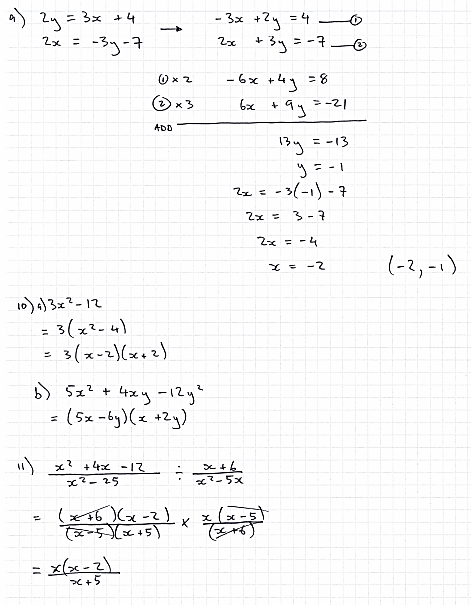 9) 2y = 3x + 4 → -3x + 2y = 4 —①
2x = -3y - 7 2x + 3y = -7 —②
① × 2 -6x + 4y = 8
② × 3 6x + 9y = -21
ADD
13y = -13
y = -1
2x = -3(-1) - 7
2x = 3 - 7
2x = -4
x = -2 (-2, -1)
10) a) 3x² - 12
= 3(x² - 4)
= 3(x - 2)(x + 2)
b) 5x² + 4xy - 12y²
= (5x - 6y)(x + 2y)
11) (x² + 4x - 12)/(x² - 25) ÷ (x + 6)/(x² - 5x)
= (x + 6)(x - 2)/(x - 5)(x + 5) × x(x - 5)/(x + 6)
= x(x - 2)/(x + 5)